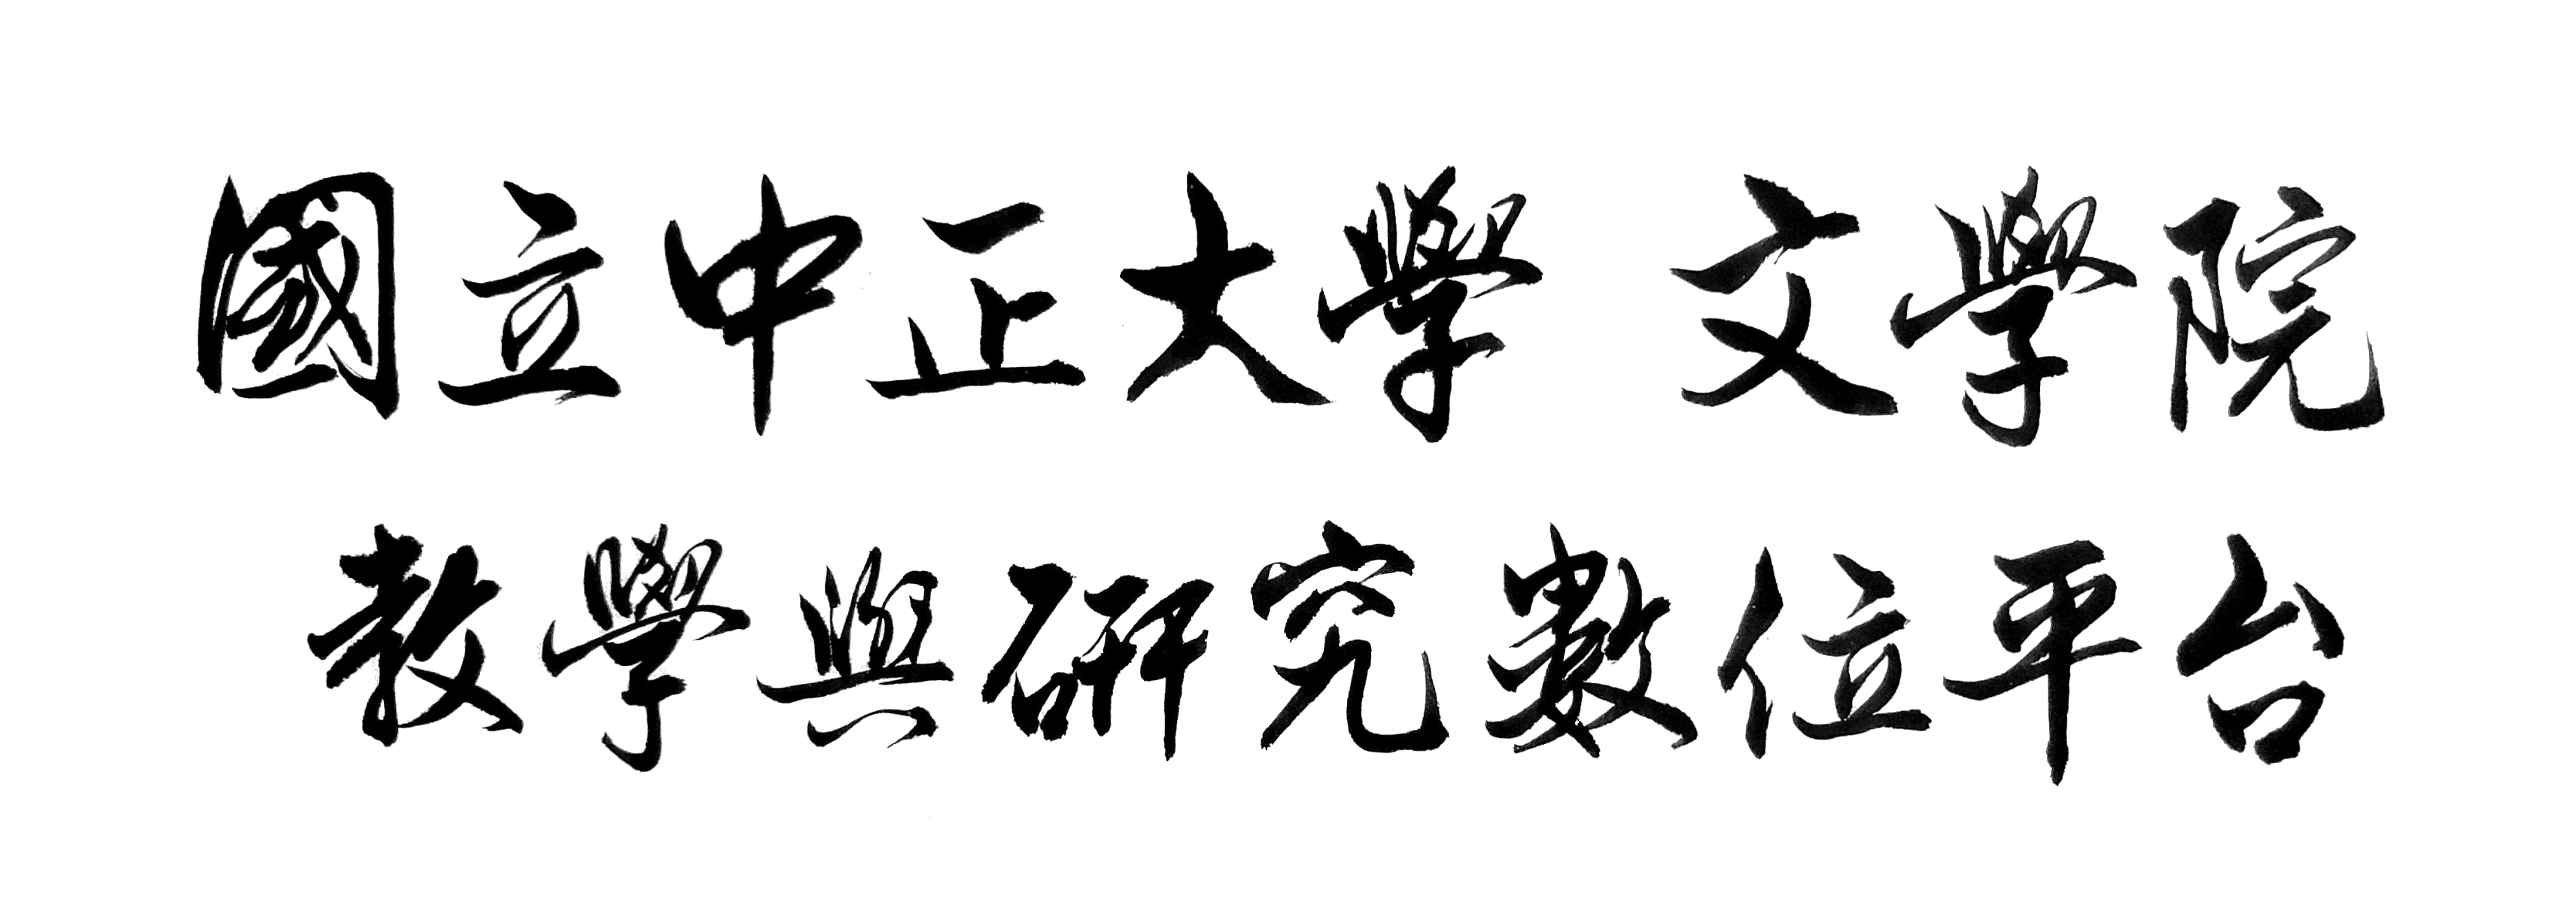 國立中正大學 文學院
教學與研究數位平台